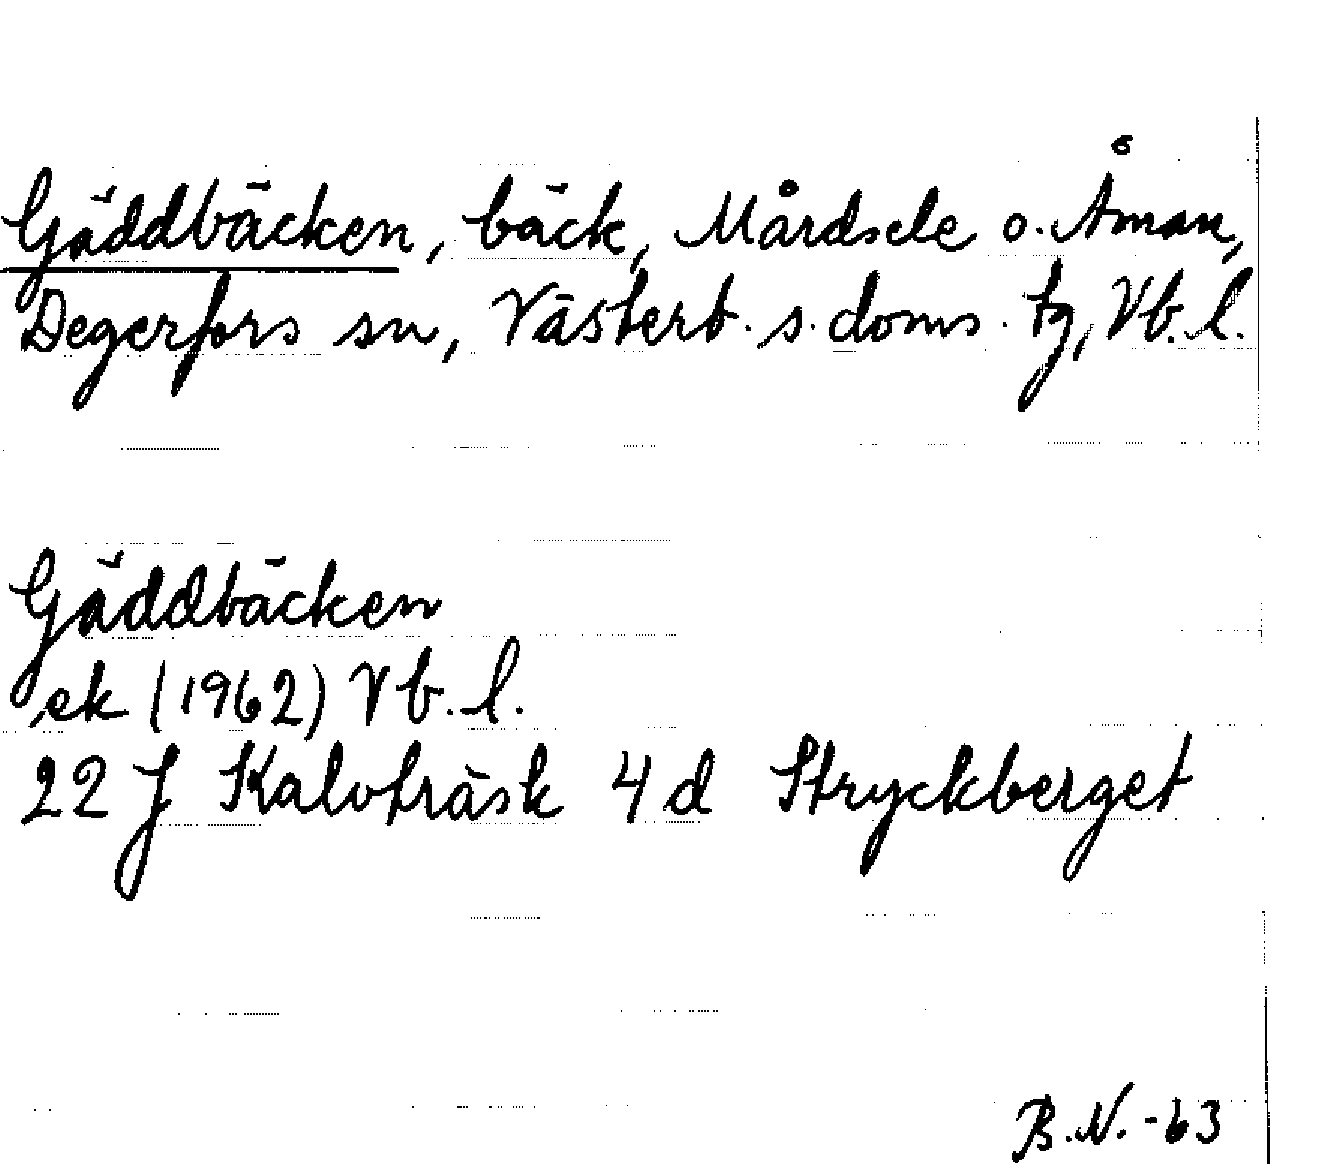 Gäddbäcken, bäck, Mårdsele o. Åman,
Degerfors sn, Västerb. s. doms. tg, Vb. l.
Gäddbäcken
ek (1962) Vb. l.
22 J Kalvträsk 4 d Stryckberget
B.N. -63